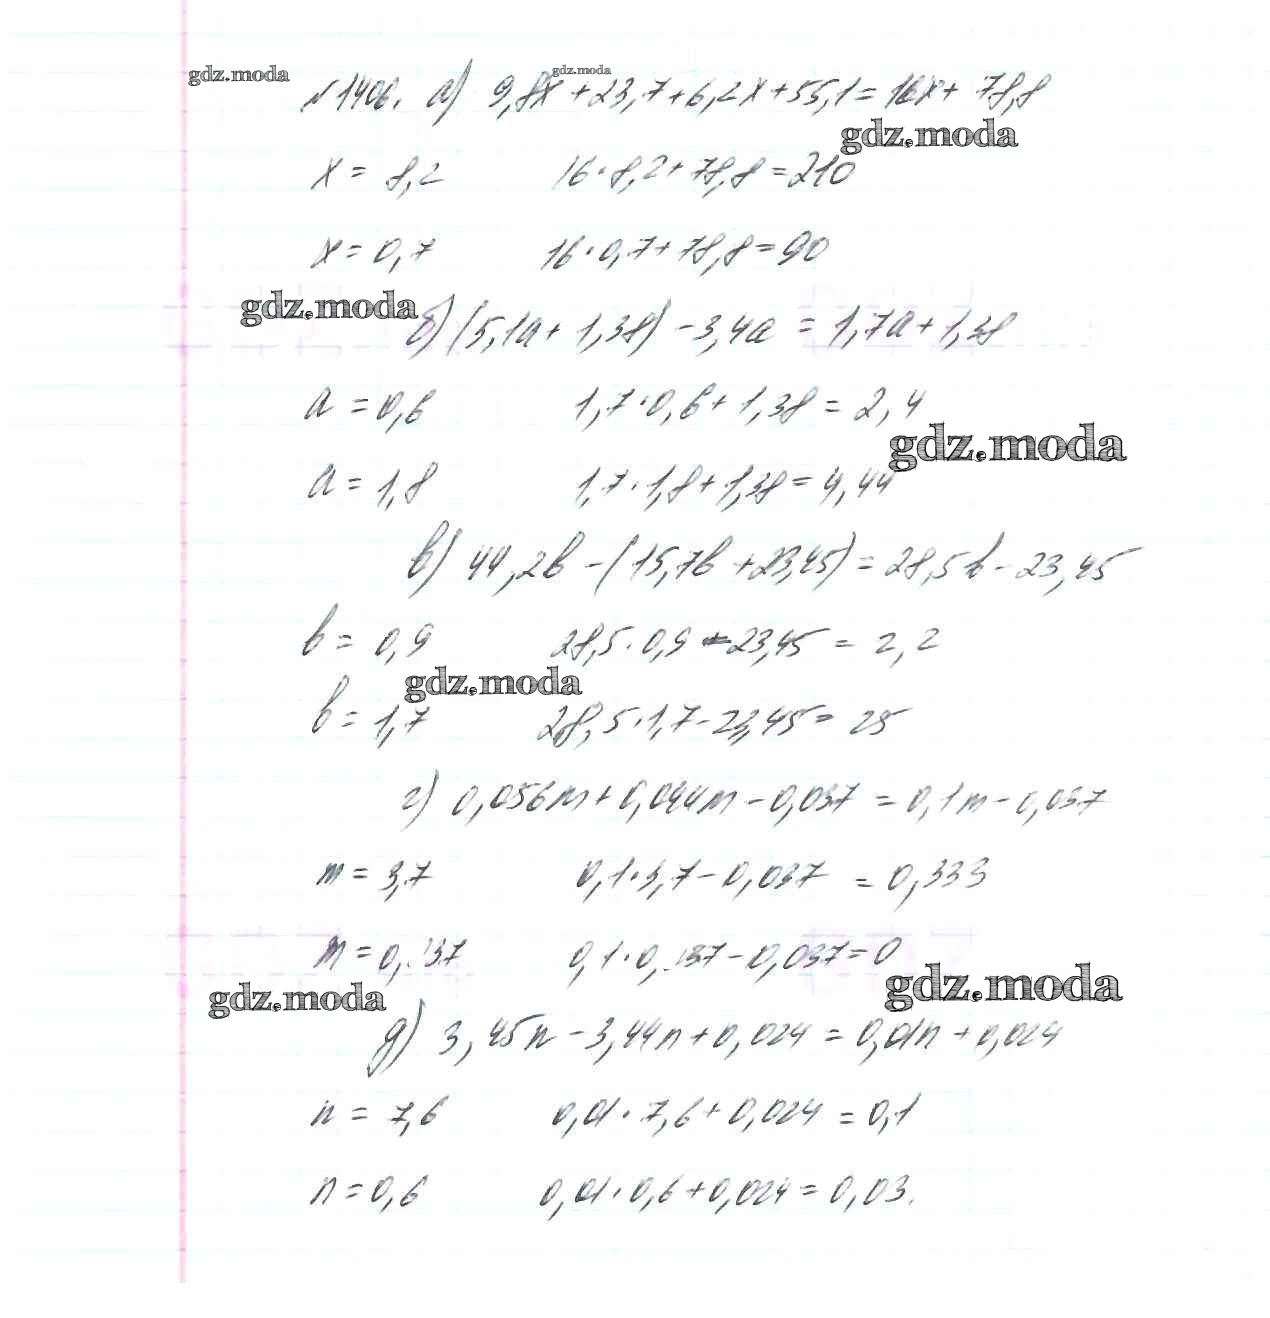 №1406. а) 9,8x + 23,7 + 6,2x + 55,1 = 16x + 78,8
x = 8,2 16 · 8,2 + 78,8 = 210
x = 0,7 16 · 0,7 + 78,8 = 90
б) (5,1a + 1,38) - 3,4a = 1,7a + 1,38
a = 0,6 1,7 · 0,6 + 1,38 = 2,4
a = 1,8 1,7 · 1,8 + 1,38 = 4,44
в) 44,2b - (15,7b + 23,45) = 28,5b - 23,45
b = 0,9 28,5 · 0,9 - 23,45 = 2,2
b = 1,7 28,5 · 1,7 - 23,45 = 25
г) 0,056m + 0,044m - 0,037 = 0,1m - 0,037
m = 3,7 0,1 · 3,7 - 0,037 = 0,333
m = 0,37 0,1 · 0,37 - 0,037 = 0
д) 3,45n - 3,44n + 0,024 = 0,01n + 0,024
n = 7,6 0,01 · 7,6 + 0,024 = 0,1
n = 0,6 0,01 · 0,6 + 0,024 = 0,03.
gdz.moda
gdz.moda
gdz.moda
gdz.moda
gdz.moda
gdz.moda
gdz.moda
gdz.moda